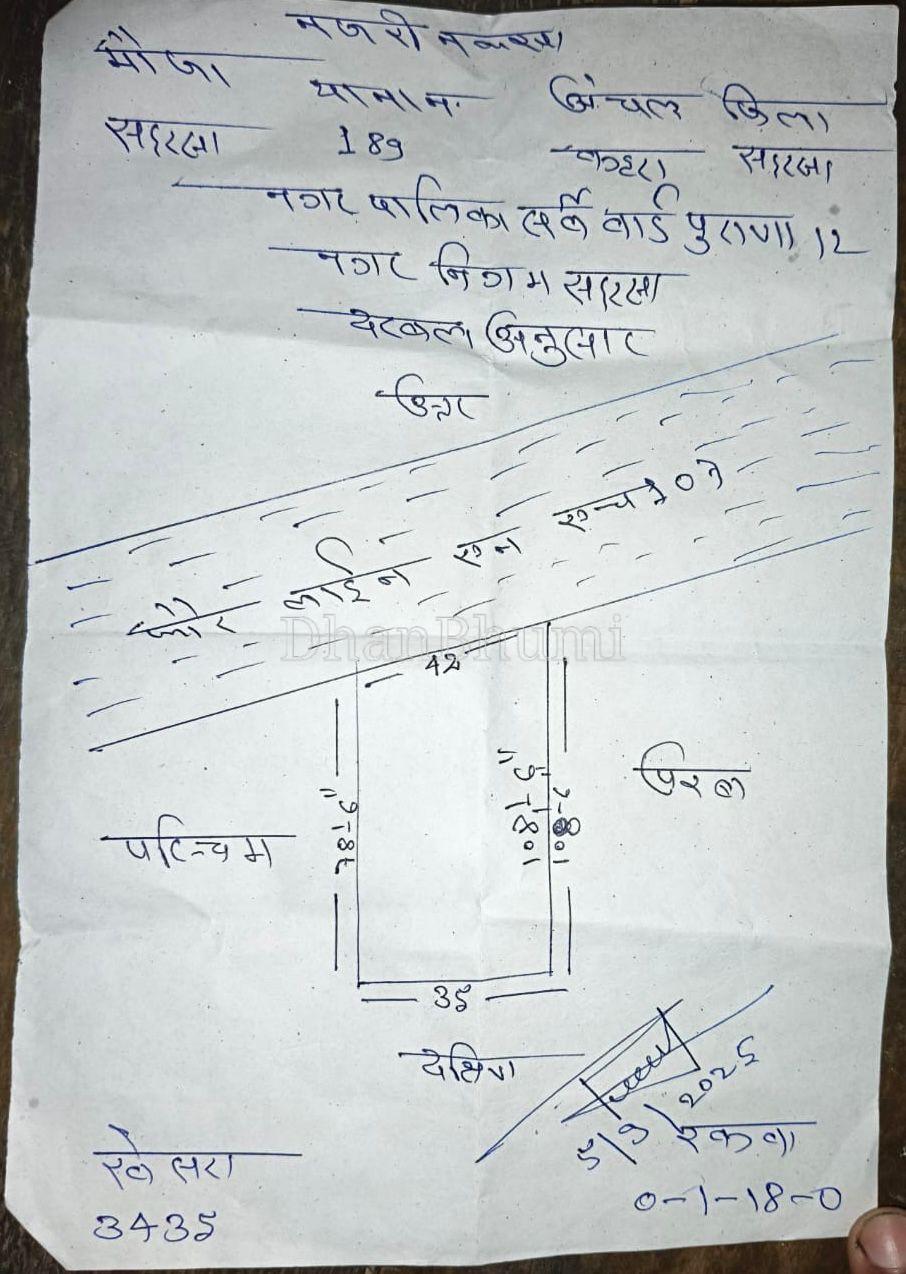 नजरी नक्सा
मौजा थाना न. अंचल जिला
सहरसा 189 कहरा सहरसा
नगर पालिका सर्वे वार्ड पुराणा 12
नगर निगम सहरसा
दखल अनुसार
उत्तर
फोर लाईन एन एच 107
DhanBhumi
42
78-6"
108-6"
पुरब
पश्चिम
35
दक्षिण
2025
खेसरा रकवा
3435 0-1-18-0